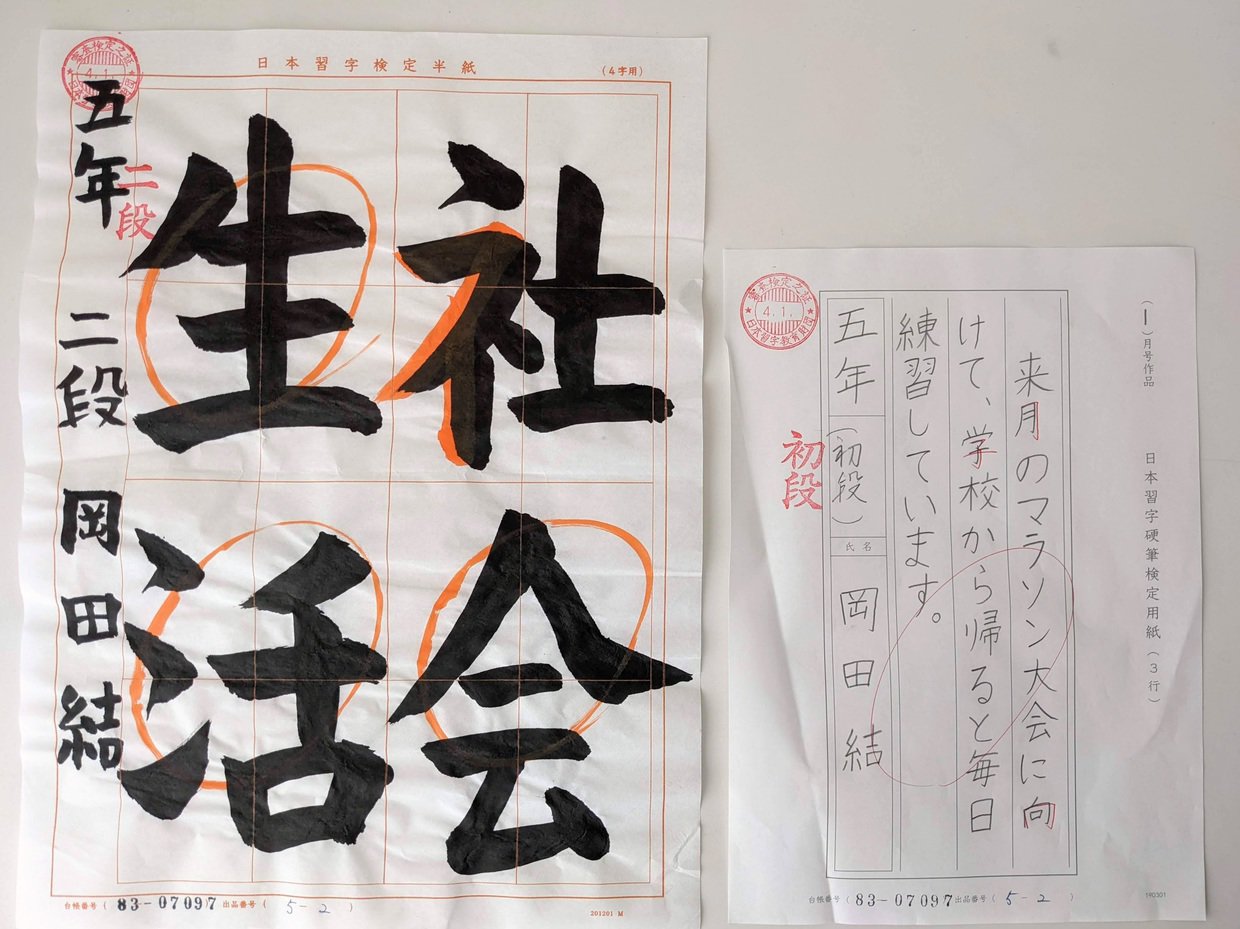 日本習字検定半紙
(4字用)
社会
生活
審査検定之証
4.1.
五年 二段 岡田結
二段
台帳番号( 83-07097 出品番号( 5-2 )
201201 M
(1)月号作品 日本習字硬筆検定用紙(3行)
来月のマラソン大会に向
けて、学校から帰ると毎日
練習しています。
五年(初段)氏名 岡田結
初段
審査検定之証
4.1.
日本習字教育財団
台帳番号( 83-07097 出品番号( 5-2 )
190301